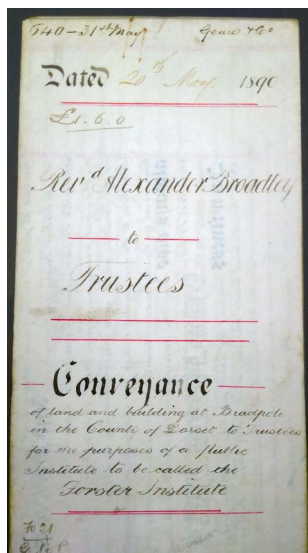 540 - 31st May
Dated 20th May 1890
£1. 6. 0
Revd Alexander Broadley
to
Trustees
Conveyance
of land and building at Bradpole
in the County of Dorset to Trustees
for the purposes of a public
Institute to be called the
Forster Institute
Fo 21